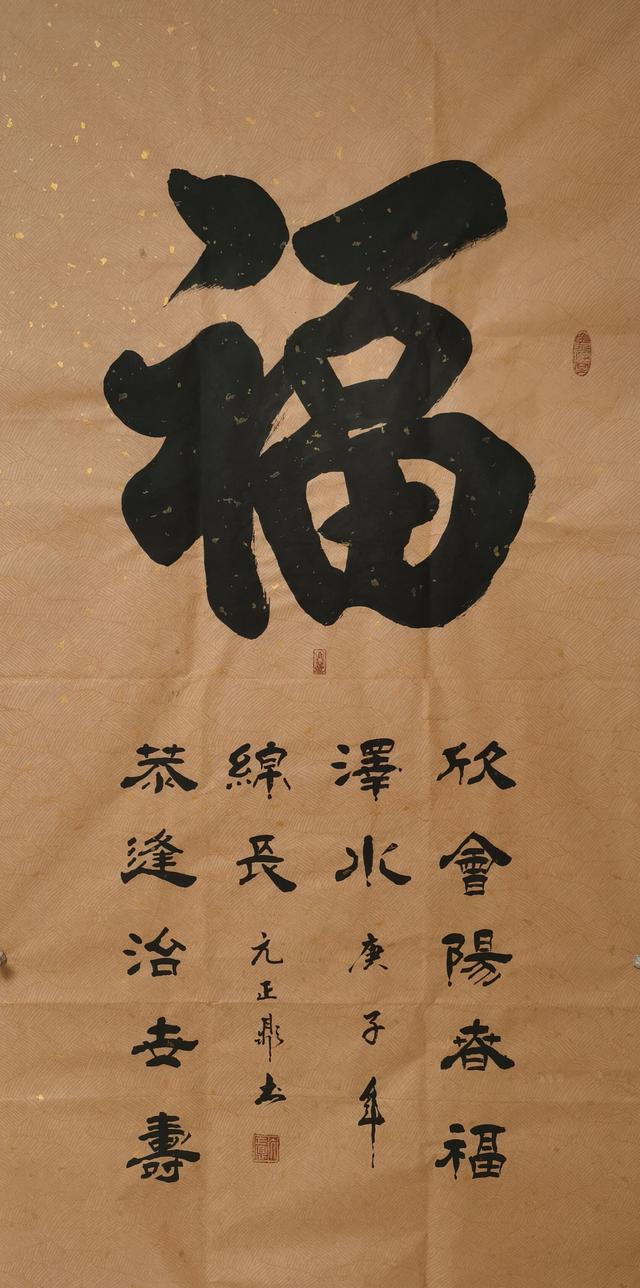 福
欣會陽春福
澤水
庚子年
恭逢治世壽
綿長
元正鼎书